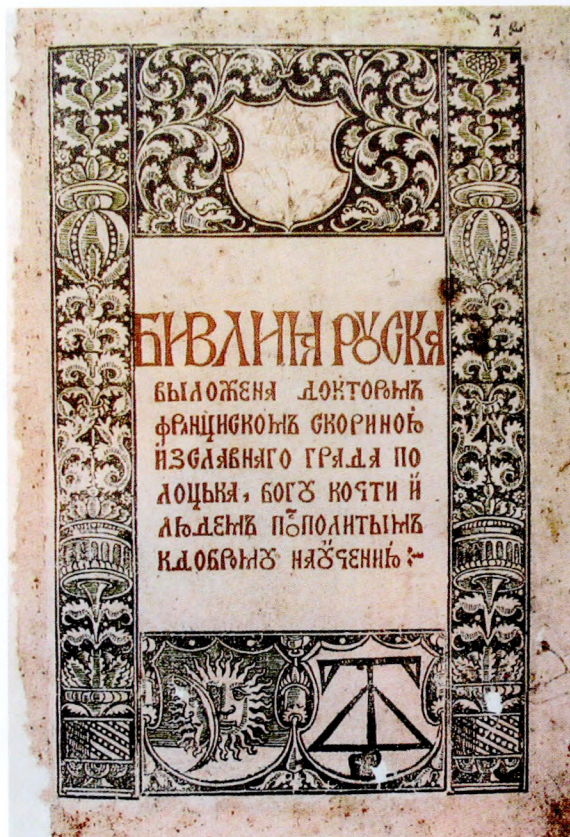 а҃
БИВЛИꙖ РꙊСКА
ВЫЛОЖЕНА ДОКТОРОМЪ
ФРАНЦИСКОМЪ СКОРИНОЮ
ИЗСЛАВНАГО ГРАДА ПО
ЛОЦЬКА, БОГꙊ КОЧТИ Й
ЛЮДЕМЪ ПОСПОЛИТЫМЪ
КДОБРОМꙊ НАꙊЧЕНИЮ